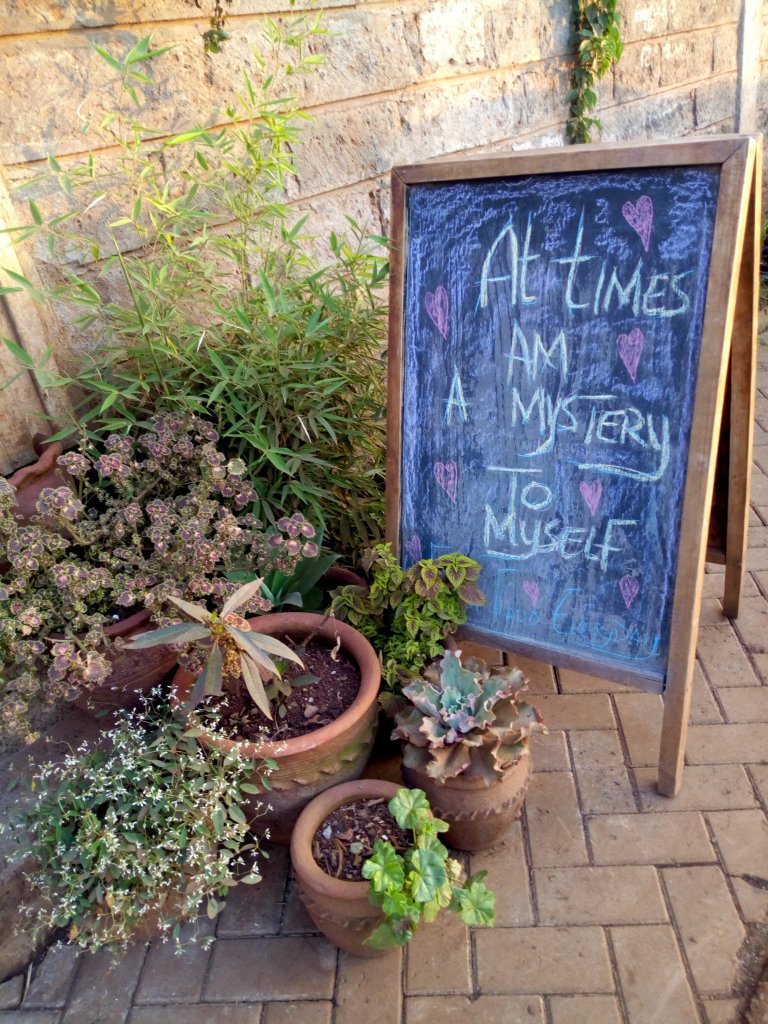 At tIMES
AM
A MYSTERY
TO
MYSELF